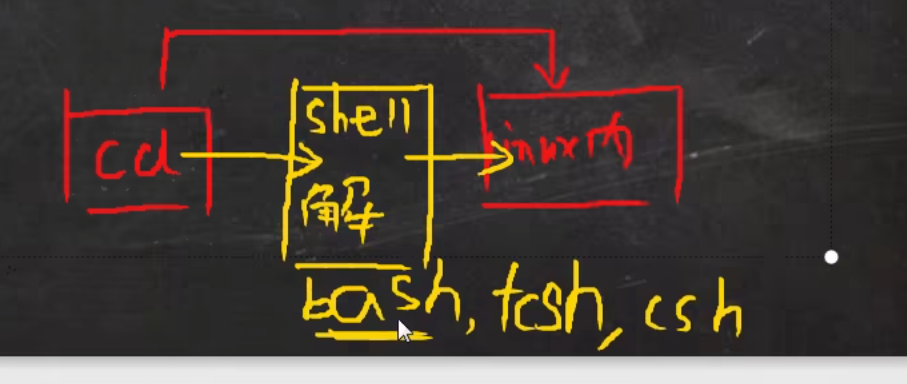 shell
cd
linux内
解
bash, tcsh, csh